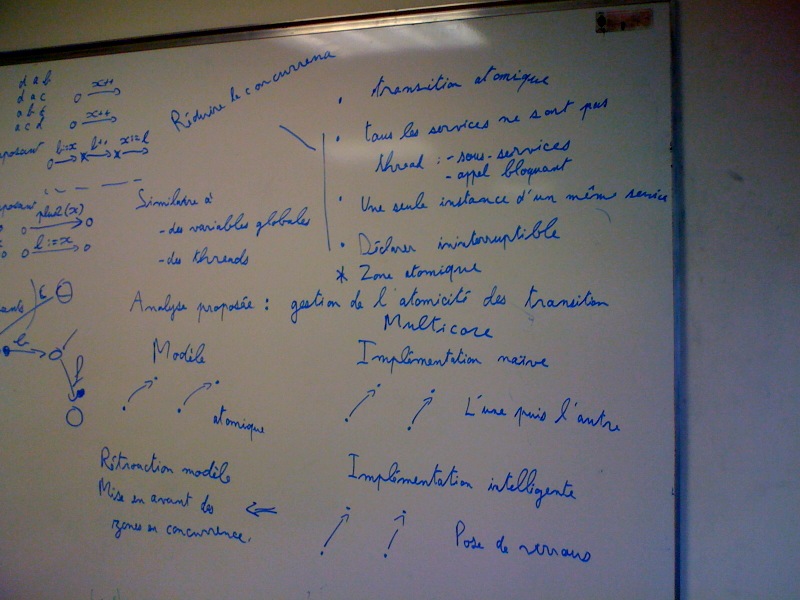 d a b
d a c
a b c
a c d
x++
x++
b:=x b++ x:=b
plus2(x)
l:=x
Réduire le concurrence
• transition atomique
• tous les services ne sont pas
thread : - sous-services
- appel bloquant
• Une seule instance d'un même service
• Déclarer ininterruptible
* Zone atomique
Similaire à
- des variables globales
- des threads
Analyse proposée : gestion de l'atomicité des transition
Multicore
Modèle
atomique
Implémentation naïve
L'une puis l'autre
Rétroaction modèle
Mise en avant des
zones en concurrence.
Implémentation intelligente
Pose de verrous